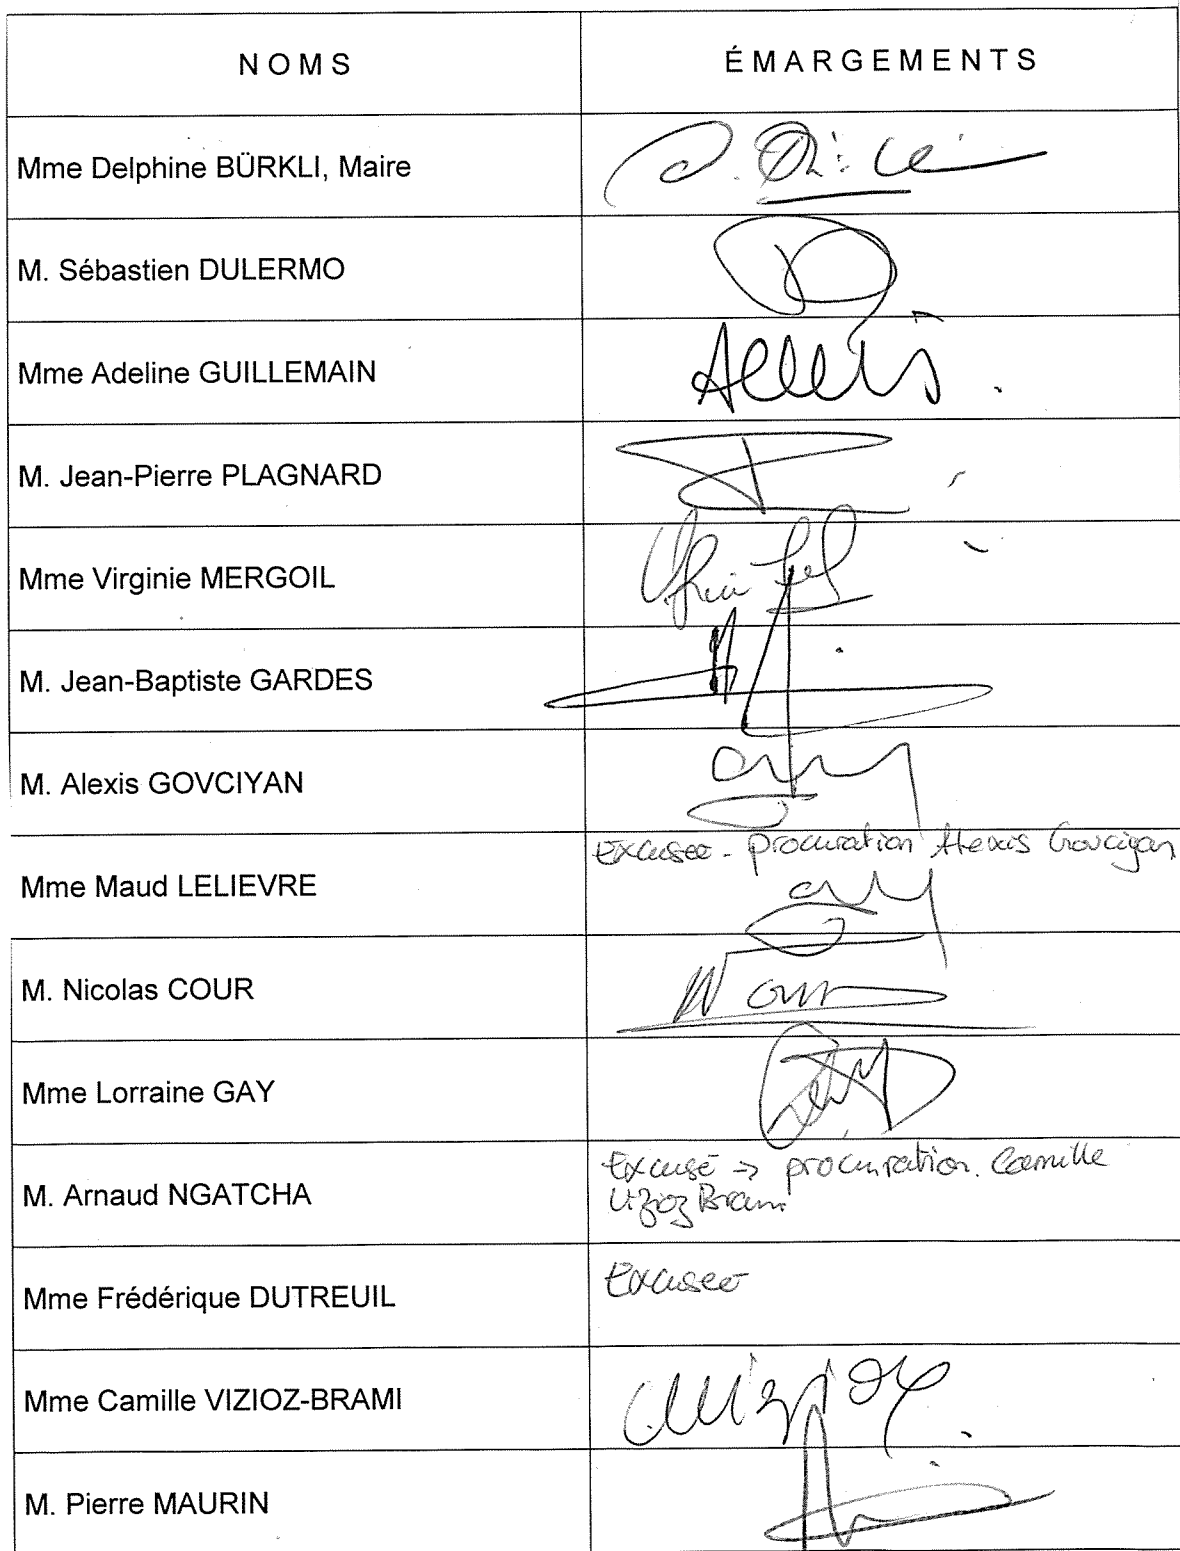 NOMS
ÉMARGEMENTS
Mme Delphine BÜRKLI, Maire
M. Sébastien DULERMO
Mme Adeline GUILLEMAIN
M. Jean-Pierre PLAGNARD
Mme Virginie MERGOIL
M. Jean-Baptiste GARDES
M. Alexis GOVCIYAN
Mme Maud LELIEVRE
Excusée - procuration Alexis Govciyan
M. Nicolas COUR
Mme Lorraine GAY
M. Arnaud NGATCHA
Excusé => procuration. Camille
Vizioz Brami
Mme Frédérique DUTREUIL
Excusée
Mme Camille VIZIOZ-BRAMI
M. Pierre MAURIN